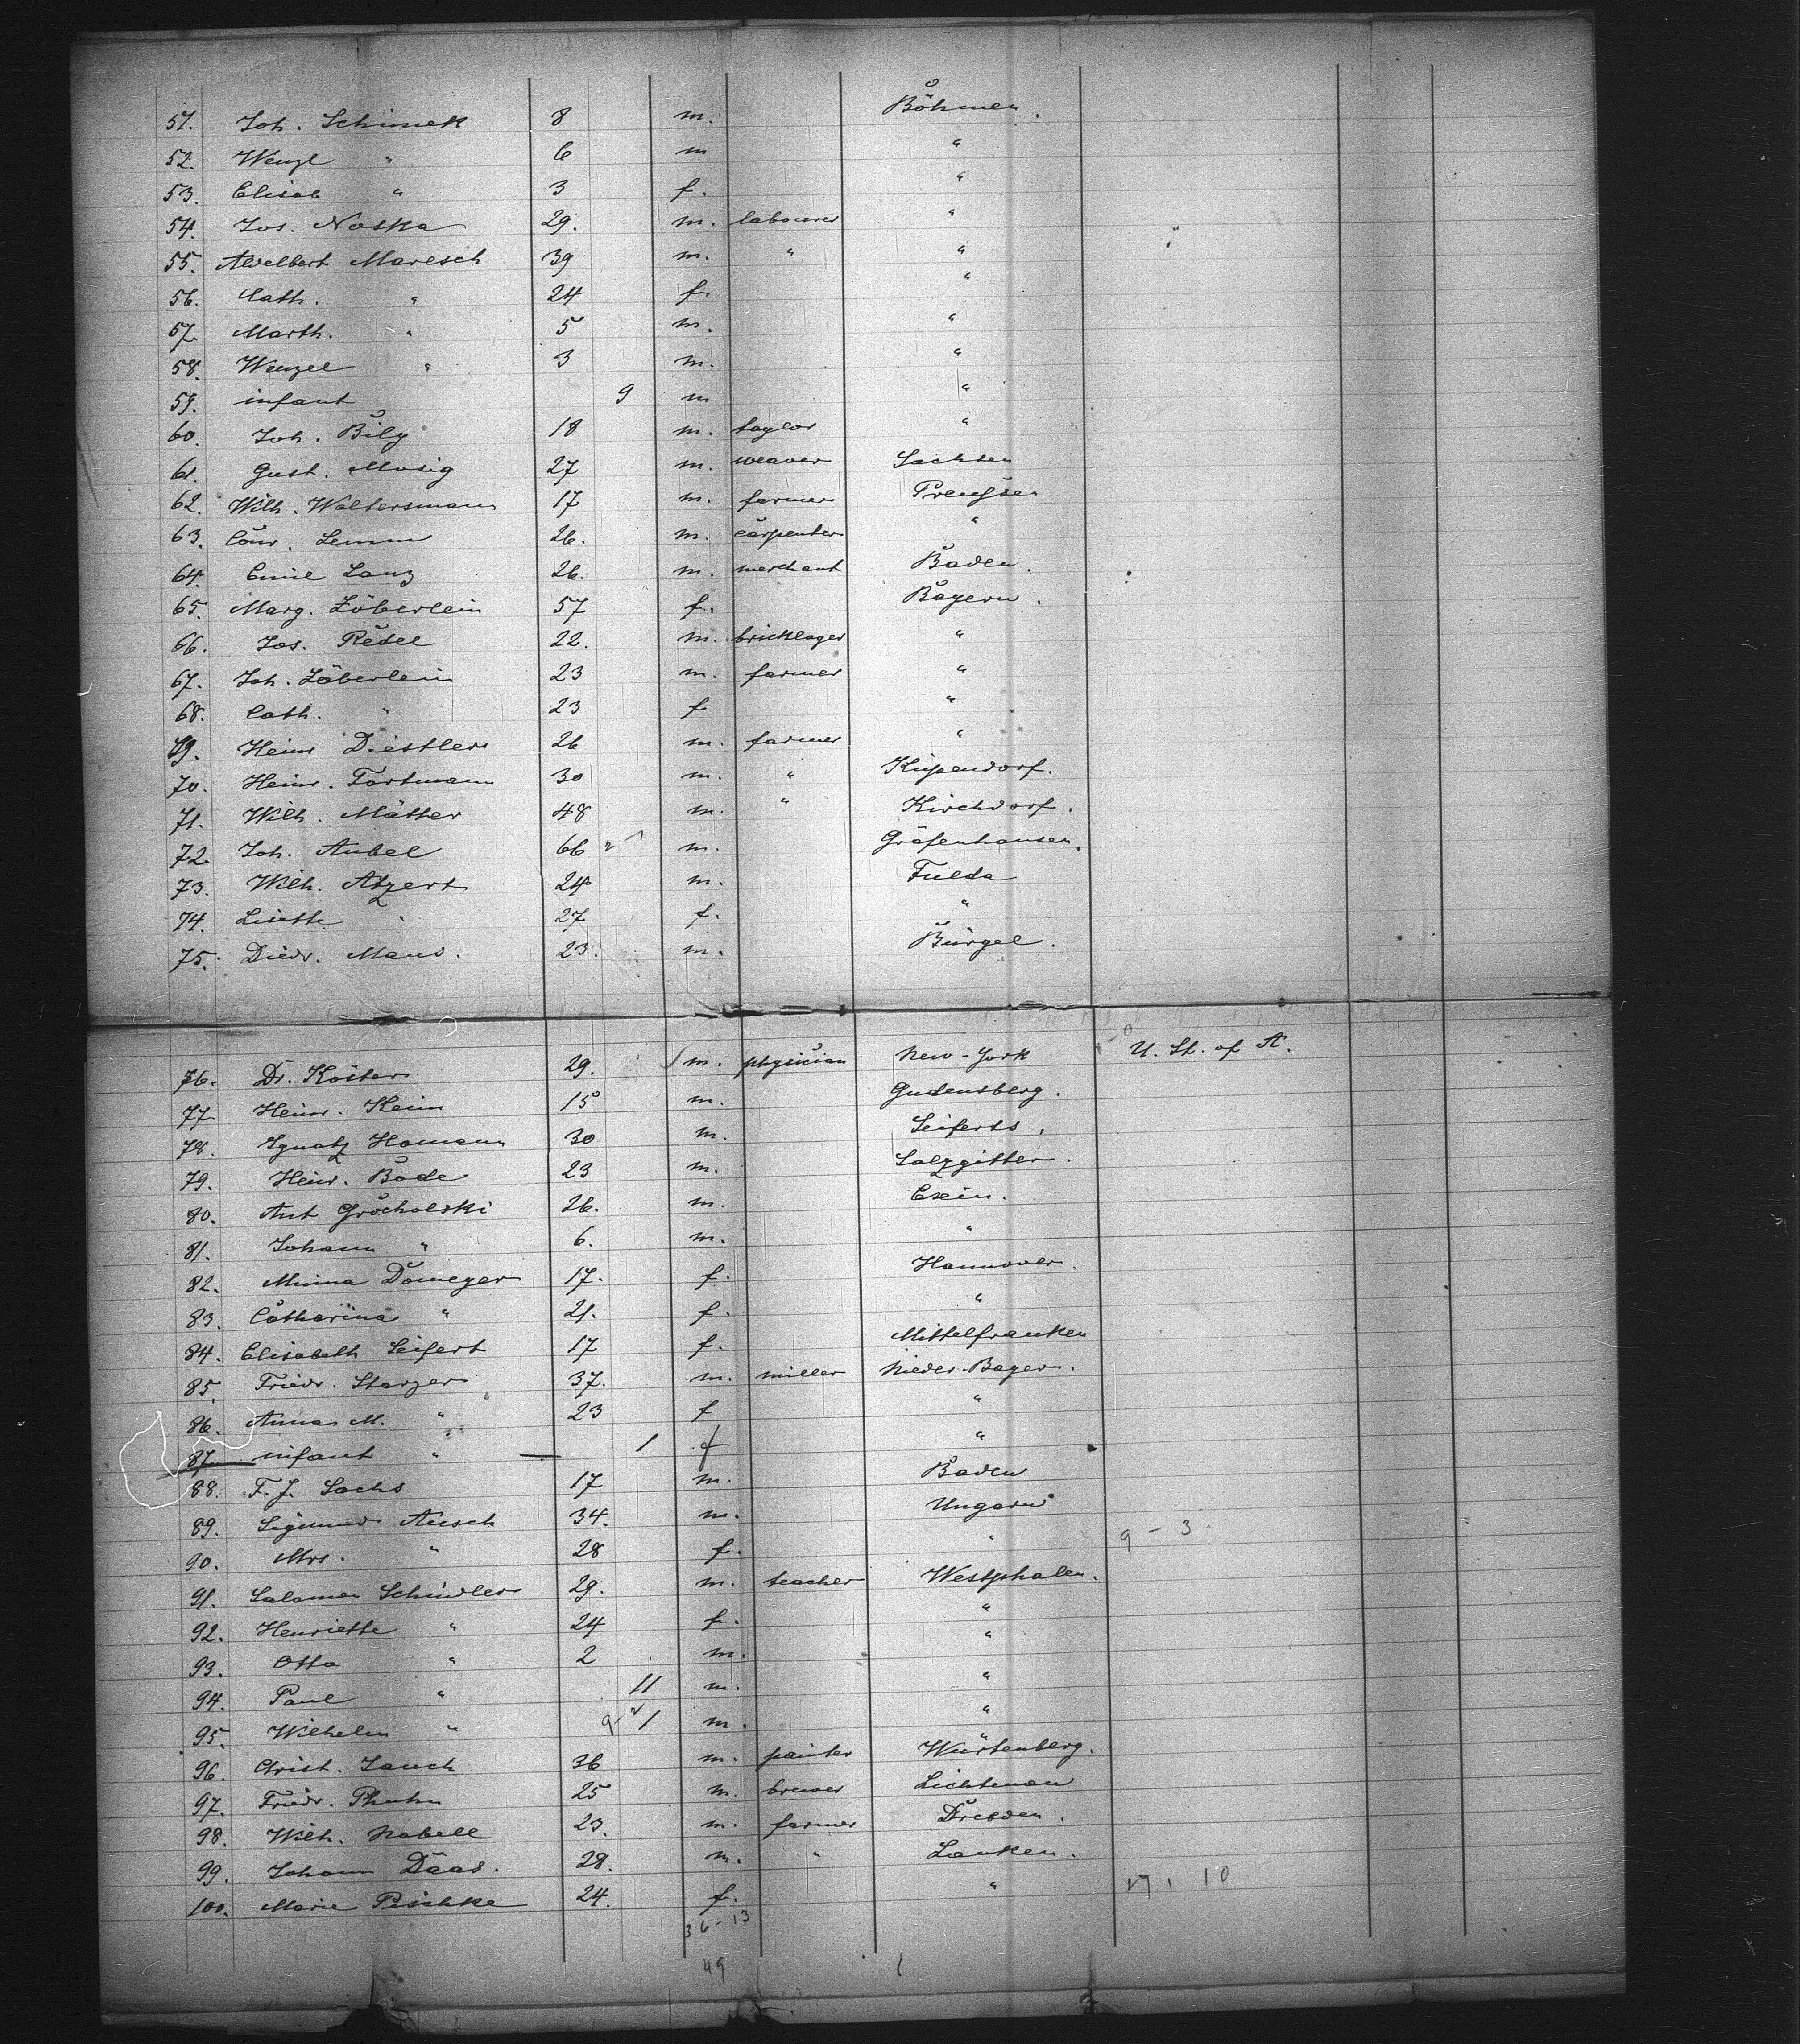 51. Joh. Schimek 8 m. Böhmen.
52. Wenzl " 6 m "
53. Elisab " 3 f. "
54. Jos. Noska 29. m. labourer "
55. Adelbert Maresch 39 m. " "
56. Cath. " 24 f. "
57. Marth. " 5 m. "
58. Wenzel " 3 m. "
59. infant 9 m "
60. Joh. Bily 18 m. taylor "
61. Gust. Mosig 27 m. weaver Sachsen
62. Wilh. Woltersmann 17 m. farmer Preußen
63. Conr. Lemm 26. m. carpenter "
64. Emil Lang 26. m. merchant Baden.
65. Marg. Zöberlein 57 f. Bayern.
66. Jos. Redel 22. m. bricklayer "
67. Joh. Zöberlein 23 m. farmer "
68. Cath. " 23 f "
69. Heinr Diestler 26 m. farmer "
70. Heinr. Fortmann 30 m. "
71. Wilh. Mätter 48 m. " Kirchdorf.
72. Joh. Aubel 66 m. Gräfenhausen.
73. Wilh. Atzert 24 m. Fulda
74. Lisette " 27 f. "
75. Diedr. Maus. 23. m. Bürgel.
76. Dr. Köster 29. m. physician New-York U. St. of A.
77. Heinr. Keim 15 m. Gudensberg.
78. Ignatz Homann 30 m. Seiferts.
79. Heinr. Bode 23 m. Salzgitter.
80. Ant Grocholski 26. m. Exin.
81. Johann " 6. m. "
82. Minna Domeyer 17. f. Hannover.
83. Catharina " 21. f. "
84. Elisabeth Seifert 17 f. Mittelfranken
85. Friedr. Starzer 37. m. miller Nieder-Bayern.
86. Anna M. " 23 f "
87. infant " 1 f "
88. F. J. Sachs 17 m. Baden
89. Sigmund Ausch 34. m. Ungarn
90. Mrs. " 28 f. " 9 - 3
91. Salomon Schindler 29. m. teacher Westphalen.
92. Henriette " 24 f. "
93. Otto " 2 m. "
94. Paul " 11 m. "
95. Wilhelm " 1 m. "
96. Christ. Jauch 36 m. painter Würtenberg.
97. Friedr. 25 m. brewer Lichtenau
98. Wilh. Nabell 23. m. farmer Dresden.
99. Johann Daas. 28. m. " Lanken.
100. Marie Peschke 24. f. " 17, 10
36-13
49